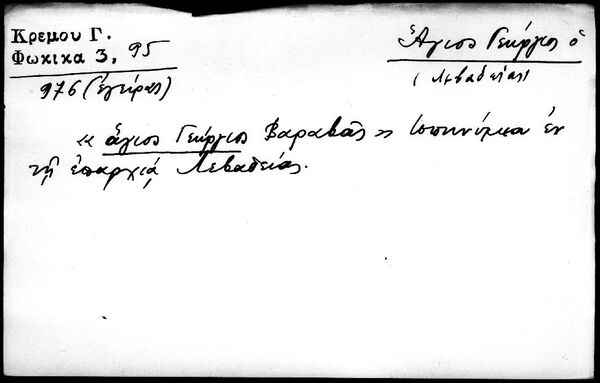 Κρεμου Γ.
Φωκικα 3, 95
976
Ἅγιος Γεώργιος ὁ
(Λεβαδείας)
« ἅγιος Γεώργιος Βαραβᾶς » ἐν
τῇ ἐπαρχίᾳ Λεβαδείας.